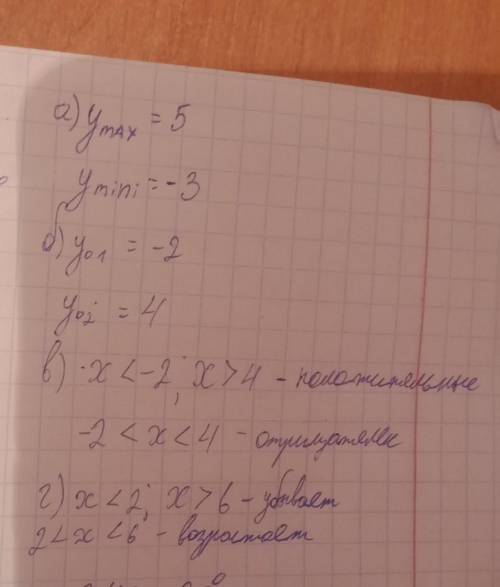 а) y max = 5
y mini = -3
б) y01 = -2
y02 = 4
в) x < -2; x > 4 - положительные
-2 < x < 4 - отрицател
г) x < 2; x > 6 - убывает
2 < x < 6 - возрастает